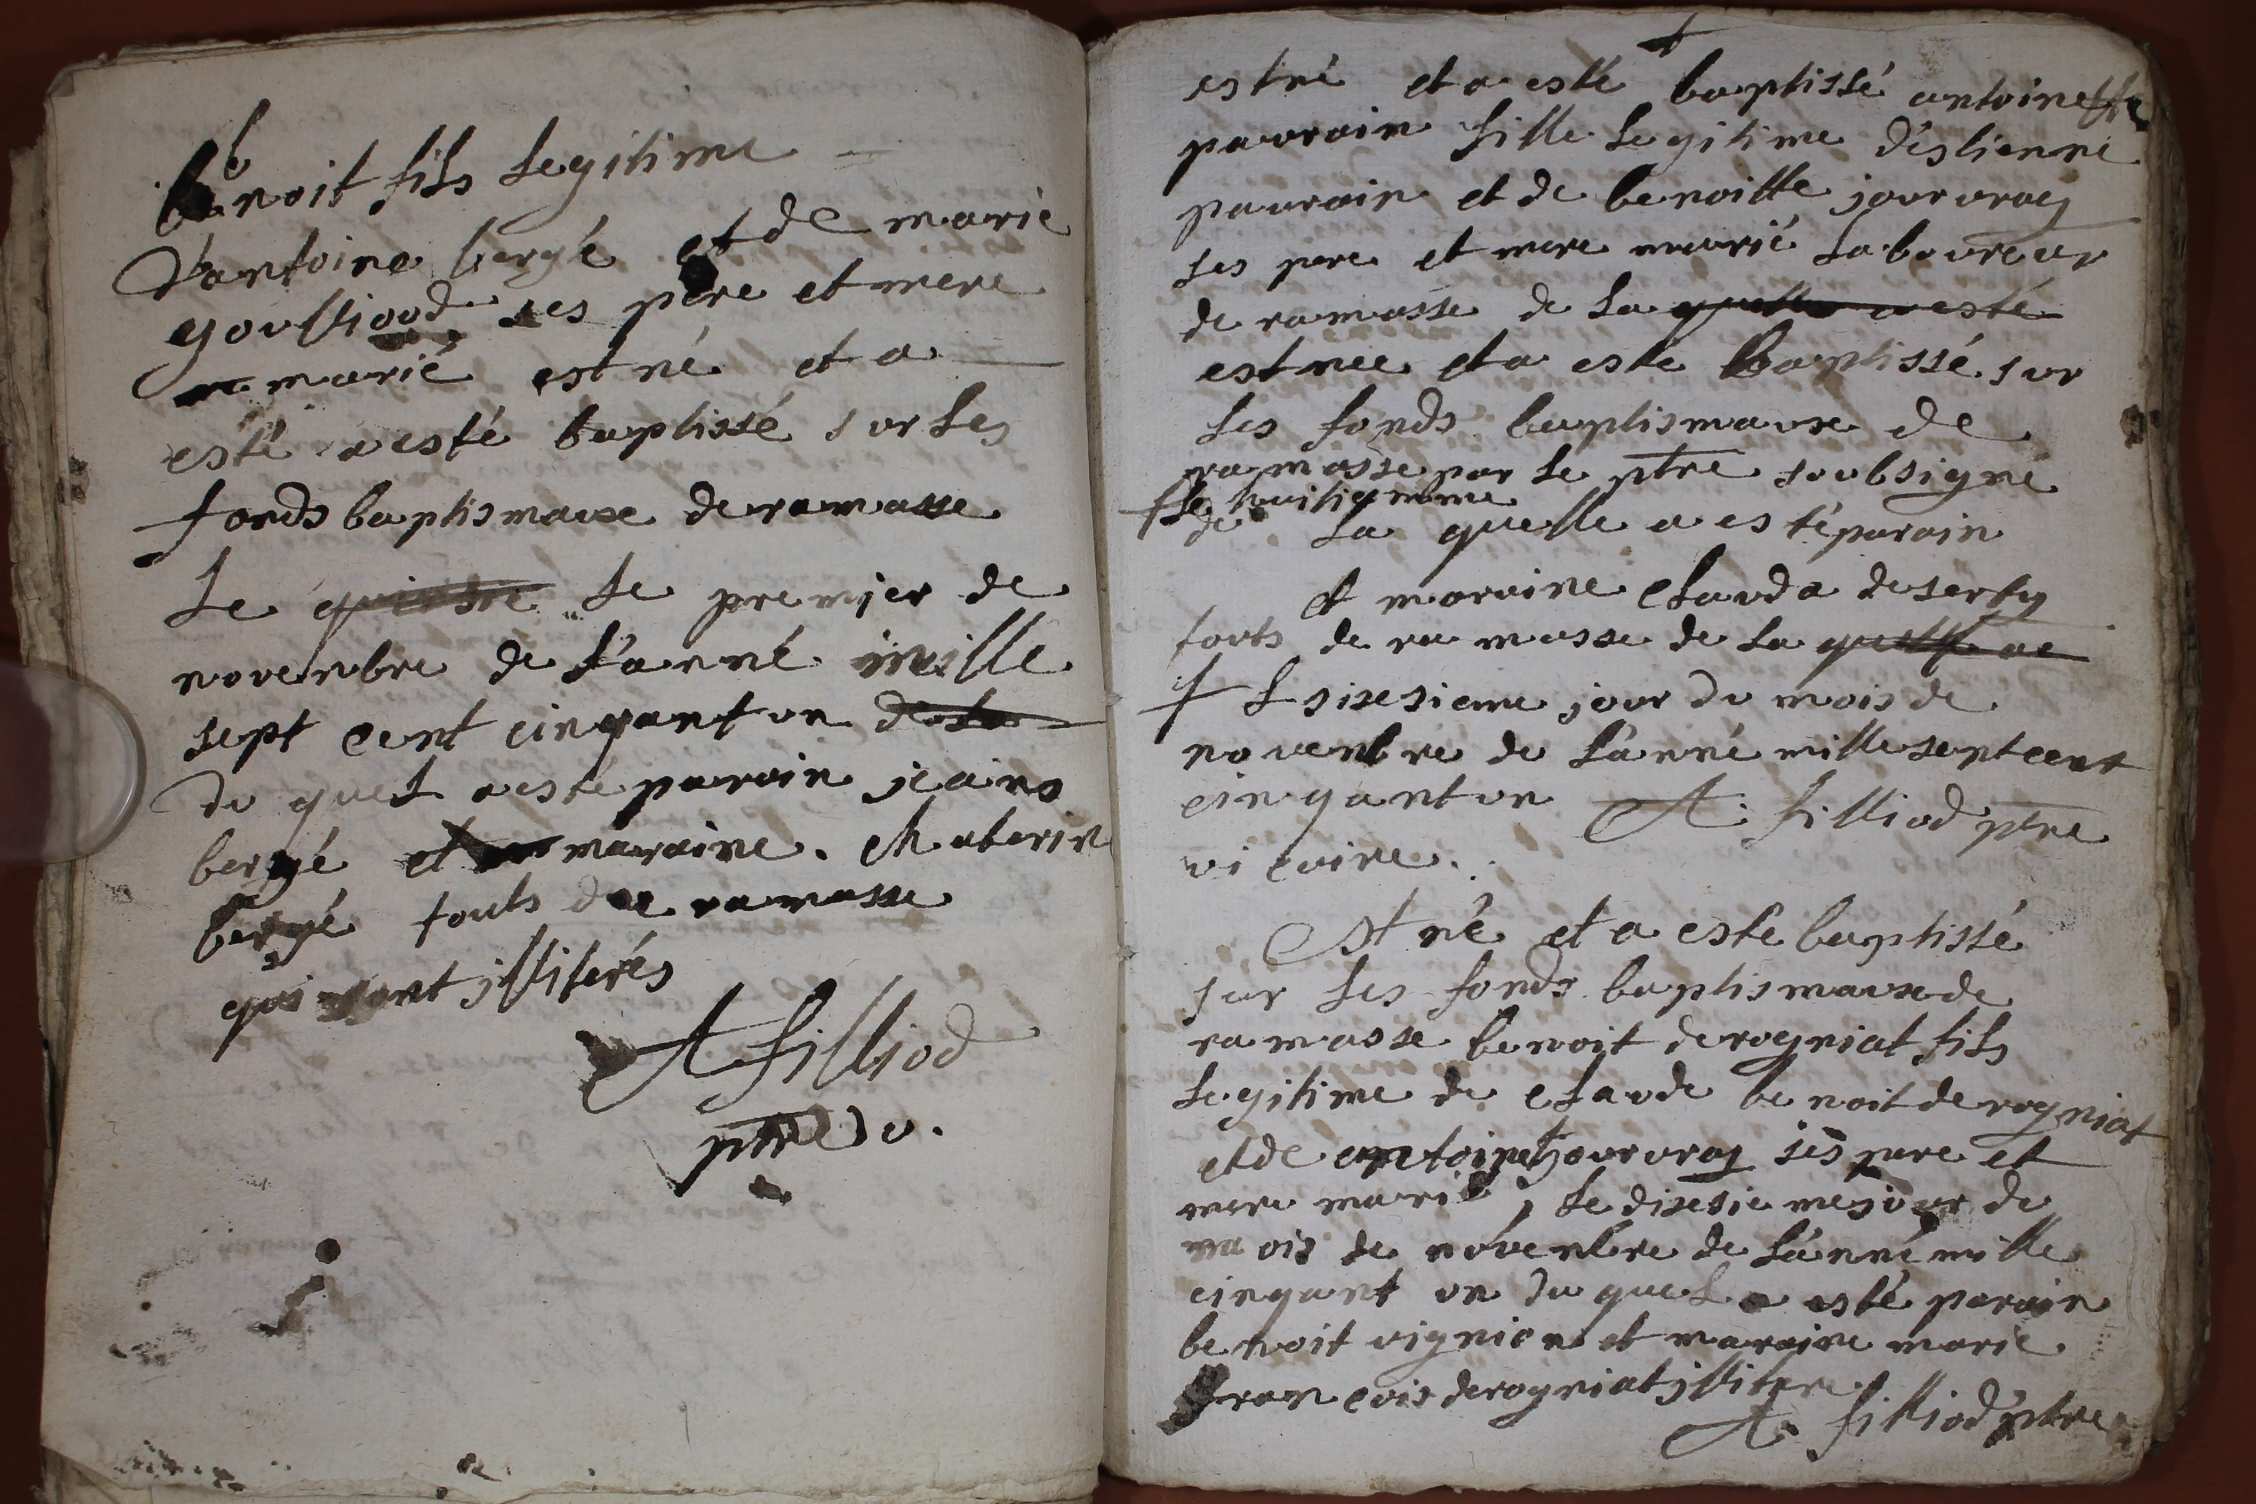 benoit fils legitime
d'antoine bergé et de marie
goulliood ses pere et mere
marié est né et a
esté a esté baptissé sur les
fonds baptismaux de ramasse
le quinse le premier de
novenbre de l'anné mille
sept cent cinqant un de la
du quel a esté parain jeain
bergé et maraine. Chaterin
bergé touts de ramasse
qui sont illiterés
A filliod
ptre v.
estné et a esté baptissé antoinette
pauvrain fille legitime d'estienne
pauvrain et de benoitte jourvray
ses pere et mere marié laboureur
de ramasse de la quelle a esté
est nee et a esté baptissé sur
les fonds baptismaux de
ramasse par le ptre soubsigné
de la quelle a esté parain
et maraine Clauda deserty
touts de ramasse de la quelle ae
l sixesieme jour du mois de
novenbre de l'anné mille sept cent
cinqant un A. filliod ptre
vicaire.
Est né et a esté baptissé
sur les fonds baptismaux de
ramasse benoit derogniat fils
legitime de Claude benoit derogniat
et de antoinet jourvray ses pere et
mere marié, le dixesieme jour du
mois de novenbre de l'anné mille
cinqant un du quel a esté parain
benoit vignion et maraine marie
francois derogniat illitere
A. filliod ptre